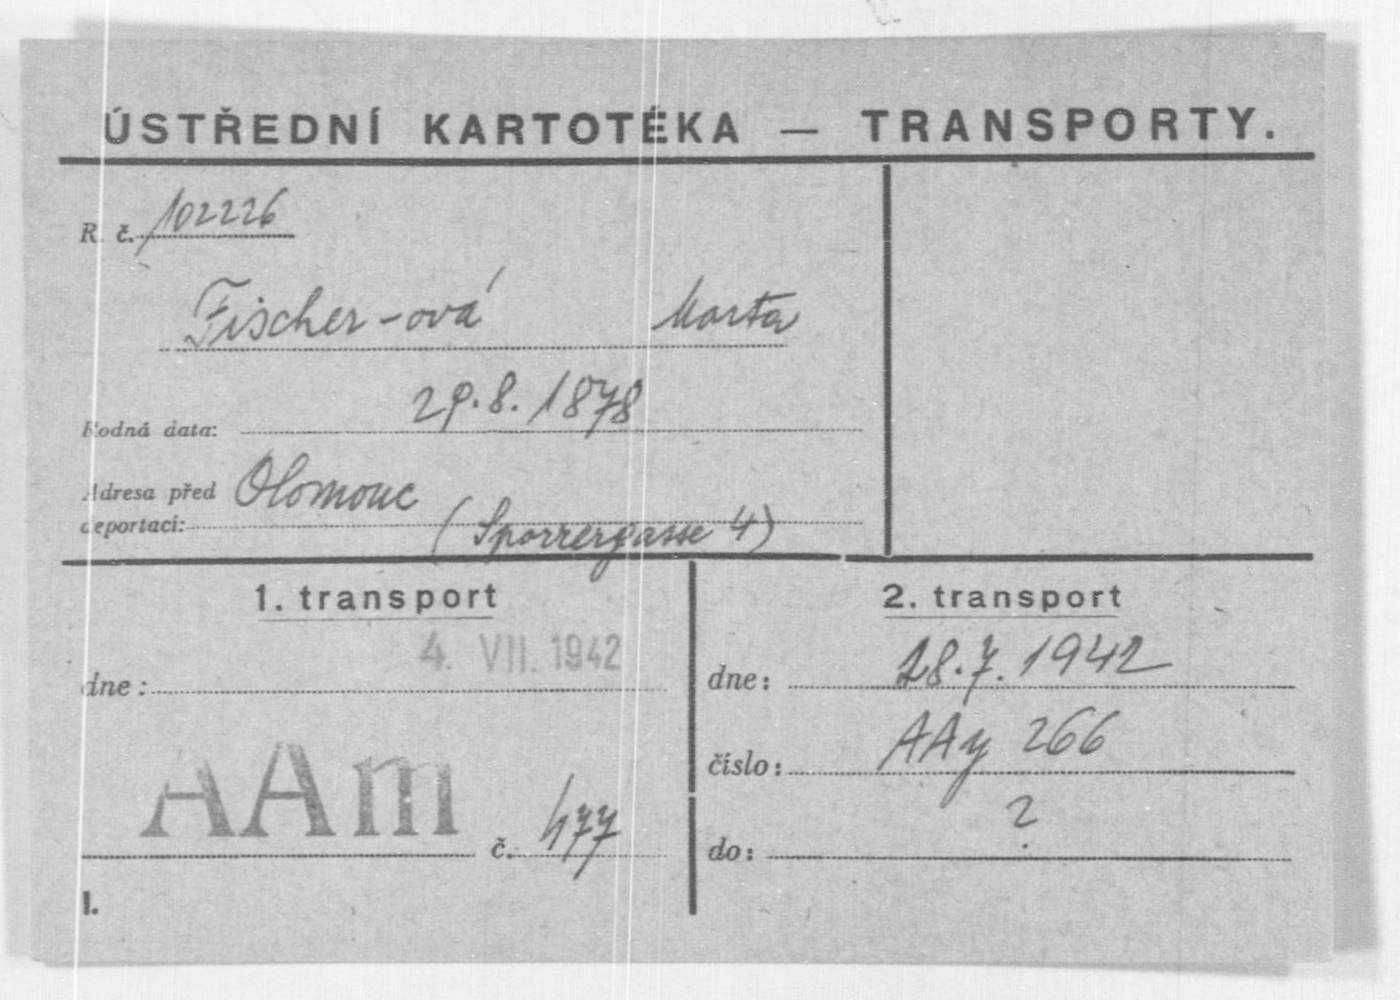 ÚSTŘEDNÍ KARTOTÉKA — TRANSPORTY.
R. č. 102226
Fischer-ová Marta
Rodná data: 29.8.1878
Adresa před Olomouc
deportací: (Sporrergasse 4)
1. transport
dne: 4. VII. 1942
AAm č. 477
I.
2. transport
dne: 28.7.1942
číslo: AAy 266
do: ?